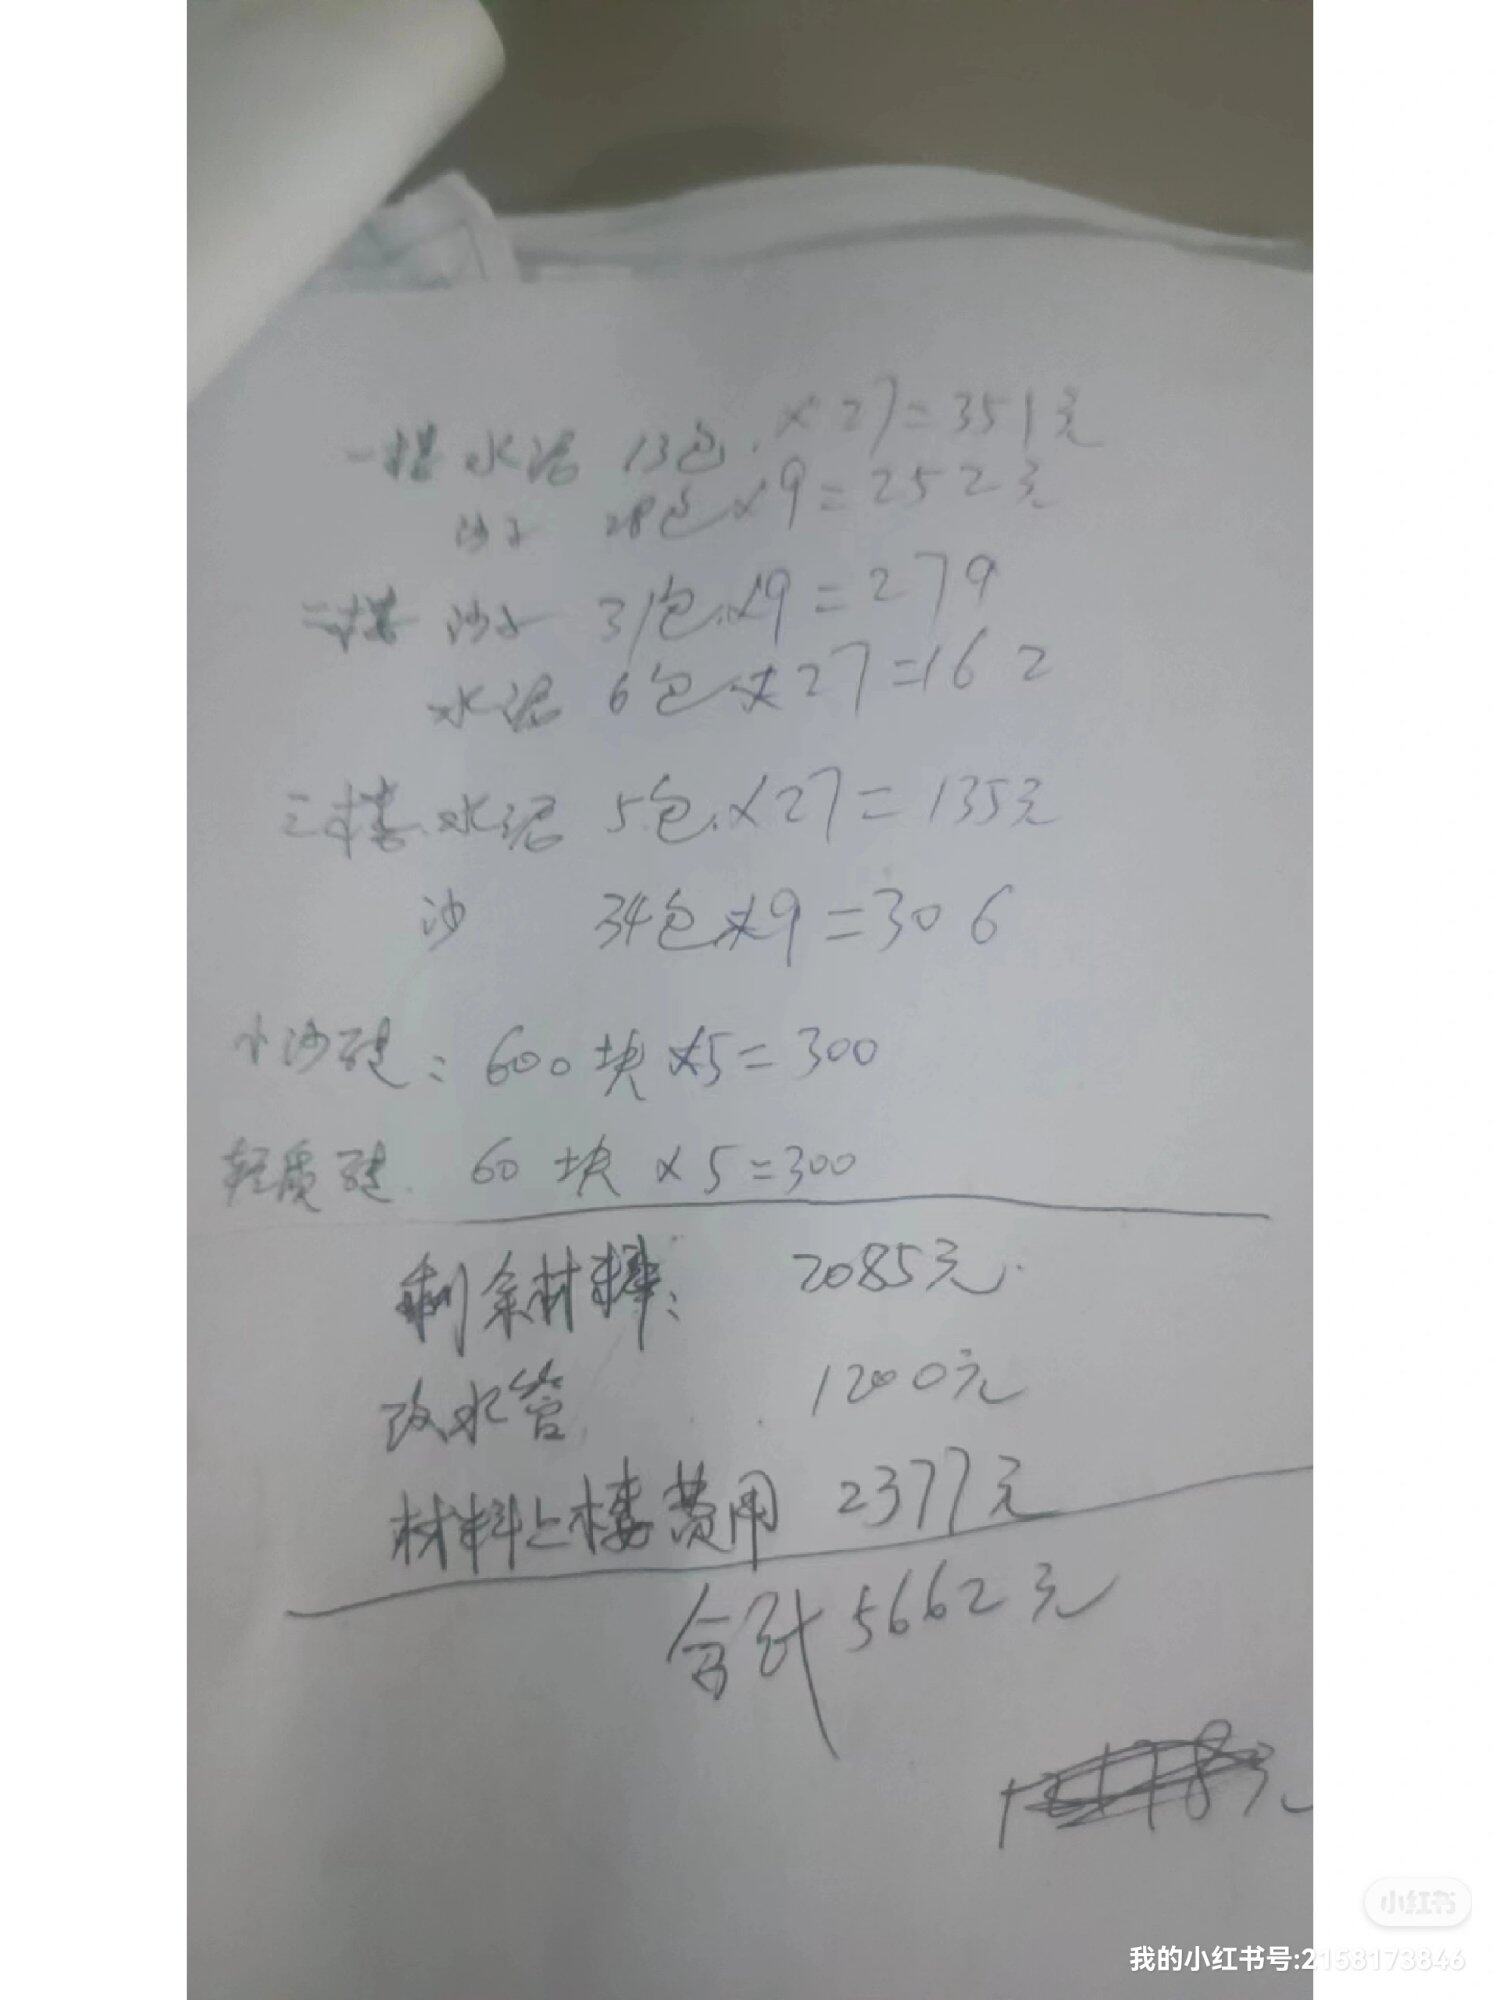 一楼 水泥 13包.×27=351元
沙子 28包×9=252元
二楼 沙子 31包.×9=279
水泥 6包×27=162
三楼.水泥 5包.×27=135元
沙 34包×9=306
小沙砖: 600块×5=300
轻质砖. 60块×5=300
剩余材料: 2085元.
改水管 1200元
材料上楼费用 2377元
合计5662元
小红书
我的小红书号:2158173846